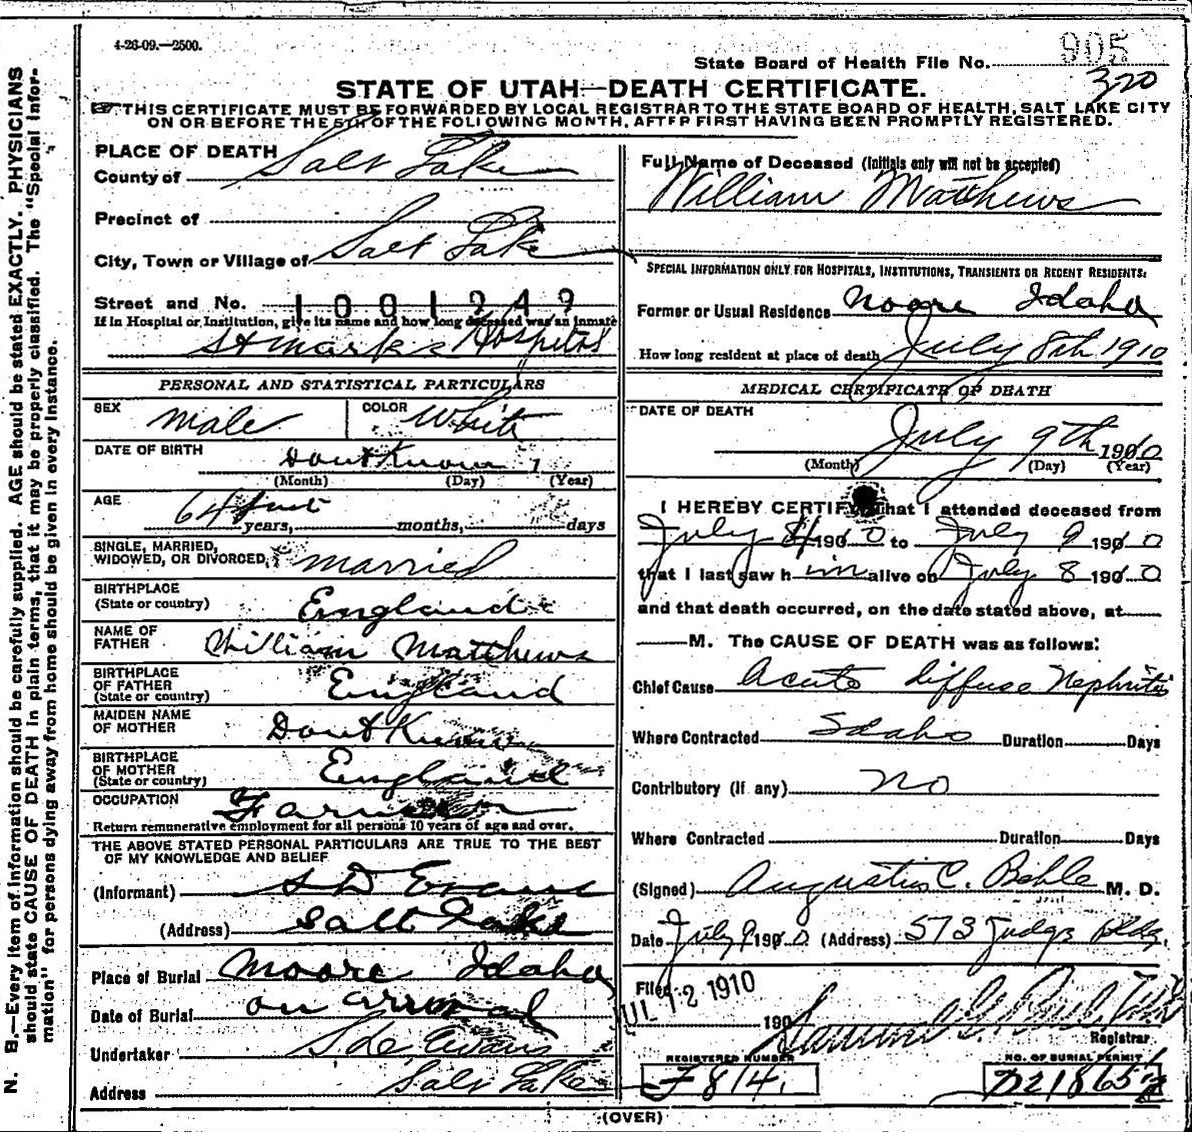 4-26-09.—2500.
State Board of Health File No. 905
320
STATE OF UTAH—DEATH CERTIFICATE.
THIS CERTIFICATE MUST BE FORWARDED BY LOCAL REGISTRAR TO THE STATE BOARD OF HEALTH, SALT LAKE CITY
ON OR BEFORE THE 5TH OF THE FOLLOWING MONTH, AFTER FIRST HAVING BEEN PROMPTLY REGISTERED.
N. B.—Every item of information should be carefully supplied. AGE should be stated EXACTLY. PHYSICIANS
should state CAUSE OF DEATH in plain terms, that it may be properly classified. The "Special Infor-
mation" for persons dying away from home should be given in every instance.
PLACE OF DEATH
County of Salt Lake
Precinct of
City, Town or Village of Salt Lake
Street and No. 1001249
If in Hospital or Institution, give its name and how long deceased was an inmate
St Marks Hospital
PERSONAL AND STATISTICAL PARTICULARS
SEX male COLOR White
DATE OF BIRTH Dont Know 1
(Month) (Day) (Year)
AGE 64 years, months, days
SINGLE, MARRIED,
WIDOWED, OR DIVORCED, married
BIRTHPLACE
(State or country) England
NAME OF
FATHER William Matthews
BIRTHPLACE
OF FATHER
(State or country) England
MAIDEN NAME
OF MOTHER Dont Know
BIRTHPLACE
OF MOTHER
(State or country) England
OCCUPATION Farmer
Return remunerative employment for all persons 10 years of age and over.
THE ABOVE STATED PERSONAL PARTICULARS ARE TRUE TO THE BEST
OF MY KNOWLEDGE AND BELIEF
(Informant) S D Evans
(Address) Salt Lake
Place of Burial Moore Idaho
Date of Burial on arrival
Undertaker S D Evans
Address Salt Lake
Full Name of Deceased (Initials only will not be accepted)
William Matthews
SPECIAL INFORMATION ONLY FOR HOSPITALS, INSTITUTIONS, TRANSIENTS OR RECENT RESIDENTS:
Former or Usual Residence Moore Idaho
How long resident at place of death July 8th 1910
MEDICAL CERTIFICATE OF DEATH
DATE OF DEATH
July 9th 1910
(Month) (Day) (Year)
I HEREBY CERTIFY that I attended deceased from
July 8 1910 to July 9 1910
that I last saw him alive on July 8 1910
and that death occurred, on the date stated above, at
M. The CAUSE OF DEATH was as follows:
Chief Cause Acute diffuse Nephritis
Where Contracted Idaho Duration Days
Contributory (if any) no
Where Contracted Duration Days
(Signed) Augustus C. Behle M. D.
Date July 9 1910 (Address) 573 Judge Bldg.
Filed JUL 12 1910
190
Registrar
REGISTERED NUMBER NO. OF BURIAL PERMIT
F814. D21865
(OVER)